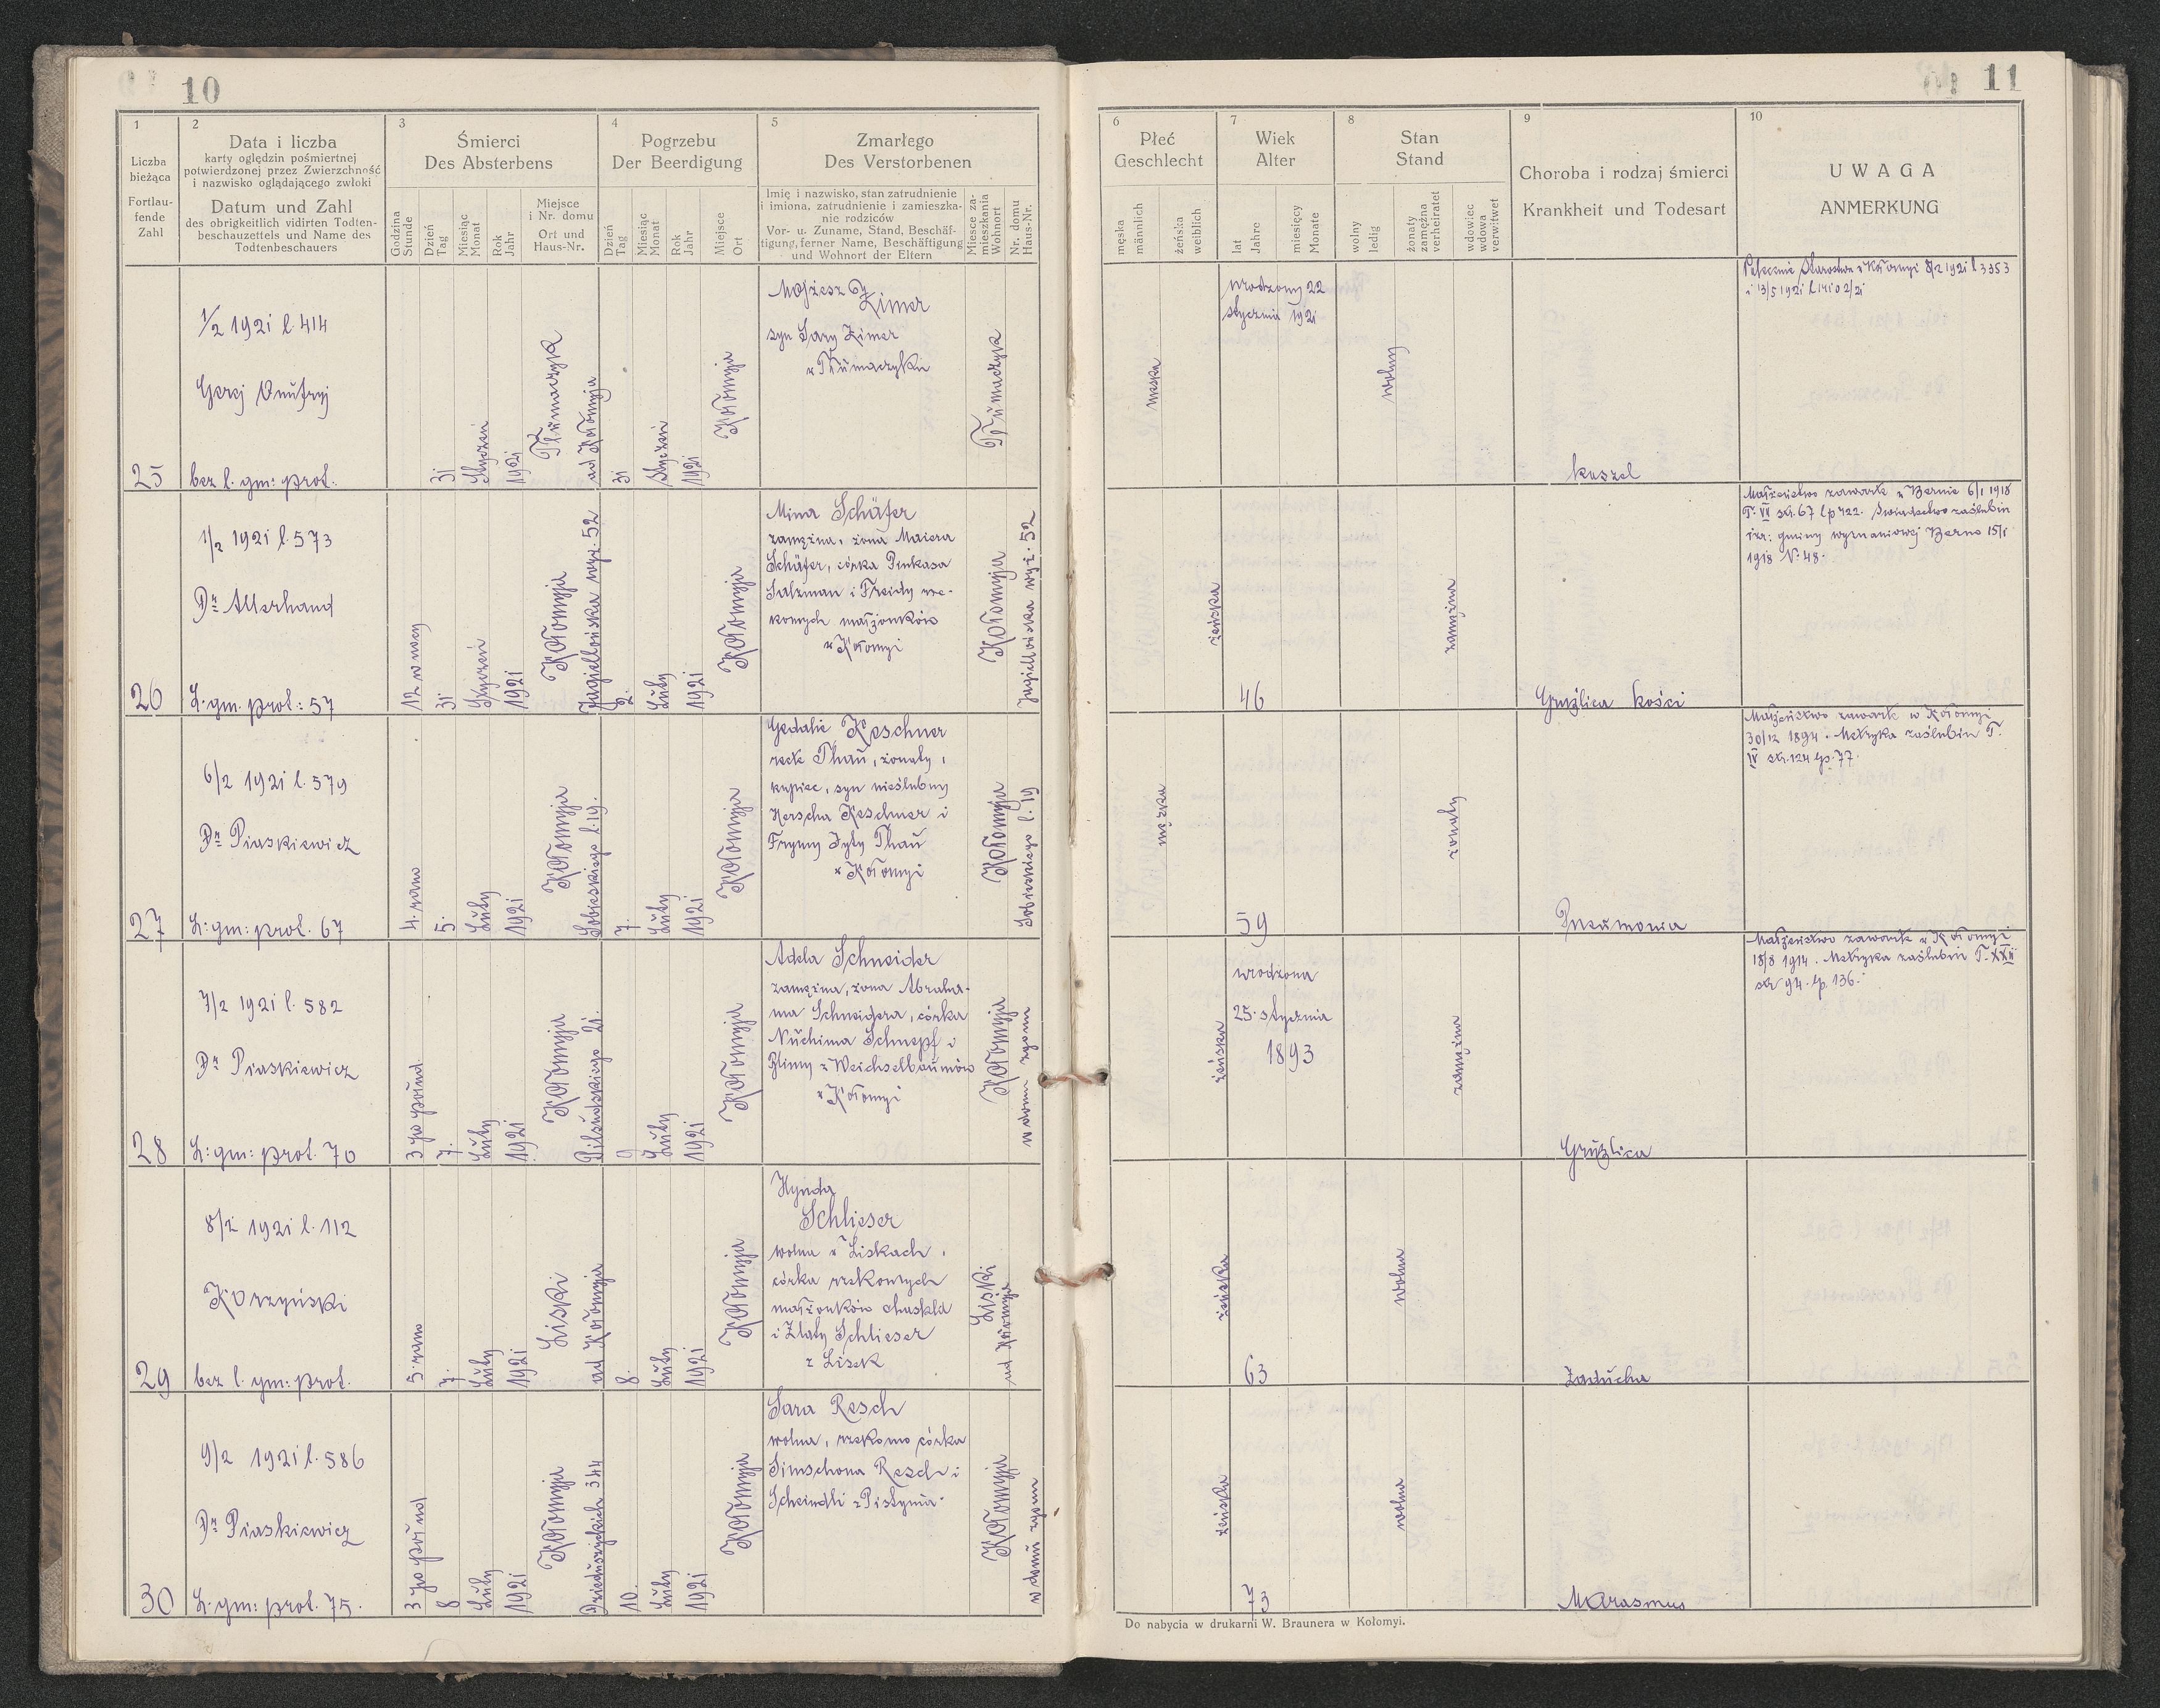 10
1
Liczba
bieżąca
Fortlau-
fende
Zahl
2
Data i liczba
karty oględzin pośmiertnej
potwierdzonej przez Zwierzchność
i nazwisko oglądającego zwłoki
Datum und Zahl
des obrigkeitlich vidirten Todten-
beschauzettels und Name des
Todtenbeschauers
3
Śmierci
Des Absterbens
Godzina
Stunde
Dzień
Tag
Miesiąc
Monat
Rok
Jahr
Miejsce
i Nr. domu
Ort und
Haus-Nr.
4
Pogrzebu
Der Beerdigung
Dzień
Tag
Miesiąc
Monat
Rok
Jahr
Miejsce
Ort
5
Zmarłego
Des Verstorbenen
Imię i nazwisko, stan zatrudnienie
i imiona, zatrudnienie i zamieszka-
nie rodziców
Vor- u. Zuname, Stand, Beschäf-
tigung, ferner Name, Beschäftigung
und Wohnort der Eltern
Miesce za-
mieszkania
Wohnort
Nr. domu
Haus-Nr.
25
1/2 1921 l. 414
Gerej Onufryj
bez l. gm: prot.
31
Styczeń
1921
Tłumaczyk
ad Kołomyja
31
Styczeń
1921
Kołomyja
Mojżesz
Zimer
syn Sary Zimer
z Tłumaczyka
Tłumaczyk
26
1/2 1921 l. 573
Dr Allerhand
L: gm. prot.: 57
12 w nocy
31
Styczeń
1921
Kołomyja
Jagiellońska wyż. 52
2.
Luty
1921
Kołomyja
Mina Schäfer
zamężna, żona Maiera
Schäfer, córka Pinkasa
Salzman i Freidy rze-
komych małżonków
z Kołomyi
Kołomyja
Jagiellońska wyż. 52
27
6/2 1921 l. 579
Dr Piaskiewicz
L: gm: prot. 67
4. rano
5.
Luty
1921
Kołomyja
Sobieskiego l. 19.
7.
Luty
1921
Kołomyja
Gedalie Keschner
recte Thau, żonaty,
kupiec, syn nieślubny
Herscha Keschner i
Frymy Jyty Thau
z Kołomyi
Kołomyja
Sobieskiego l. 19
28
7/2 1921 l. 582
Dr Piaskiewicz
L: gm: prot. 70
3 po połud.
7.
Luty
1921
Kołomyja
Piłsudskiego 21.
9
Luty
1921
Kołomyja
Adela Schneider
zamężna, żona Abraha-
ma Schneidera, córka
Nuchima Schnepf i
Blimy z Weichselbaumów
z Kołomyi
Kołomyja
w domu zgonu
29
8/2 1921 l. 112
Korzyński
bez l. gm: prot.
5. rano
7.
Luty
1921
Liski
ad Kołomyja
8.
Luty
1921
Kołomyja
Hynda
Schlieser
wolna z Liskach,
córka rzekomych
małżonków Chaskla
i Złaty Schlieser
z Lisek
Liski
ad Kołomyja
30
9/2 1921 l. 586
Dr Piaskiewicz
L: gm: prot. 75.
3 po połud
8
Luty
1921
Kołomyja
Dzieduszyckich 344
10.
Luty
1921
Kołomyja
Sara Resch
wolna, rzekomo córka
Simschona Resch i
Scheindli z Pistynia.
Kołomyja
w domu zgonu
11
6
Płeć
Geschlecht
męska
männlich
żeńska
weiblich
7
Wiek
Alter
lat
Jahre
miesięcy
Monate
8
Stan
Stand
wolny
ledig
żonaty
zamężna
verheiratet
wdowiec
wdowa
verwitwet
9
Choroba i rodzaj śmierci
Krankheit und Todesart
10
UWAGA
ANMERKUNG
męska
urodzony 22
stycznia 1921
wolny
kaszel
Polecenie Starostwa z Kołomyi 8/2 1921 l 3353
i 13/5 1921
żeńska
46
zamężna
Gruźlica kości
Małżeństwo zawarte z Bernie 6/1 1918
T. VII str. 67 lp 422. Świadectwo zaślubin
izr: gminy wyznaniowej Berno 15/1
1918 N. 48.
męzka
59
żonaty
Pneumonia
Małżeństwo zawarte w Kołomyi
30/12 1894. Metryka zaślubin T.
IV str. 124 lp. 77.
żeńska
urodzona
25. stycznia
1893
zamężna
Gruźlica
Małżeństwo zawarte z Kołomyi
18/8 1914. Metryka zaślubin T. XXII
str 94. lp. 136.
żeńska
63
wolna
Zaducha
żeńska
73
wolna
Marasmus
Do nabycia w drukarni W. Braunera w Kołomyi.